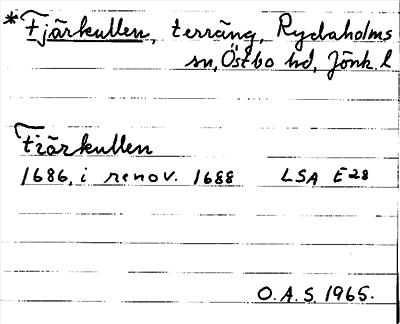 *Tjärkullen, terräng, Rydaholms
sn, Östbo hd, Jönk. l
Tiärkullen
1686, i renov. 1688 LSA E28
O.A.S. 1965.